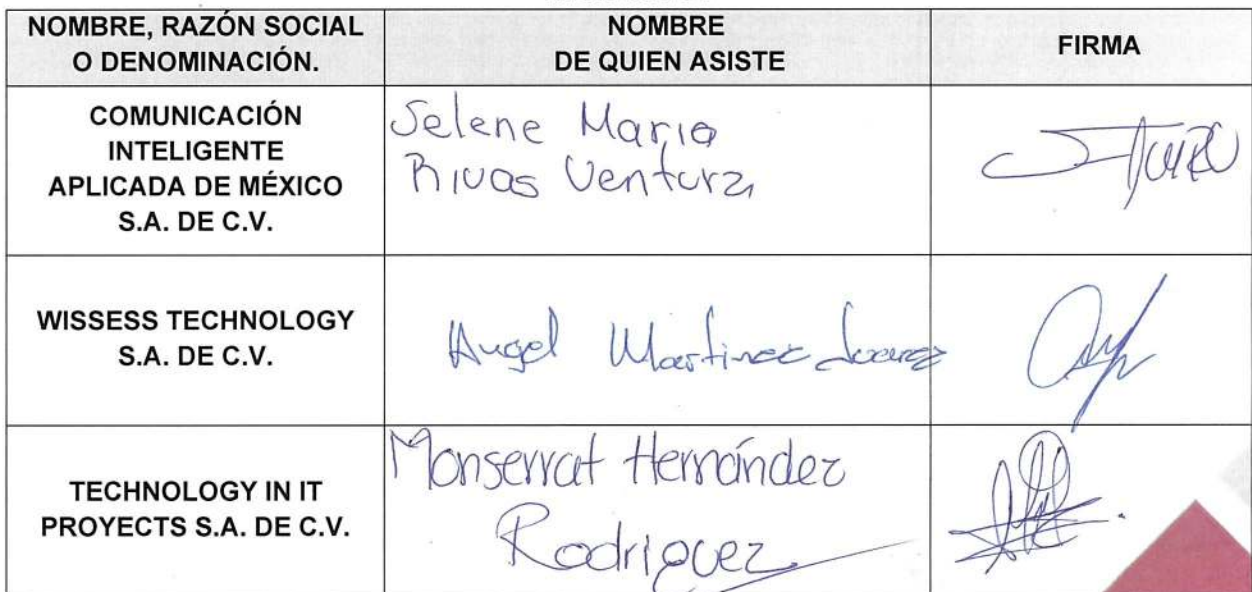 NOMBRE, RAZÓN SOCIAL
O DENOMINACIÓN.
NOMBRE
DE QUIEN ASISTE
FIRMA
COMUNICACIÓN
INTELIGENTE
APLICADA DE MÉXICO
S.A. DE C.V.
Selene Maria
Rivas Ventura
WISSESS TECHNOLOGY
S.A. DE C.V.
Angel Martinez Juarez
TECHNOLOGY IN IT
PROYECTS S.A. DE C.V.
Monserrat Hernández
Rodriguez